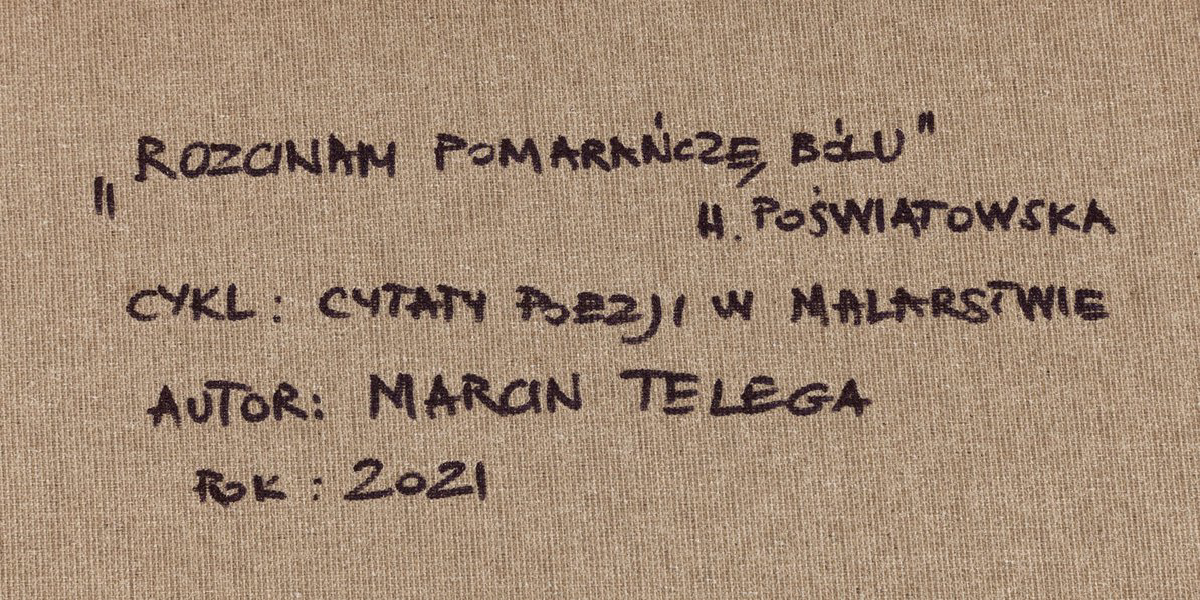 „ROZCINAM POMARAŃCZĘ BÓLU"
H. POŚWIATOWSKA
CYKL: CYTATY POEZJI W MALARSTWIE
AUTOR: MARCIN TELEGA
ROK: 2021